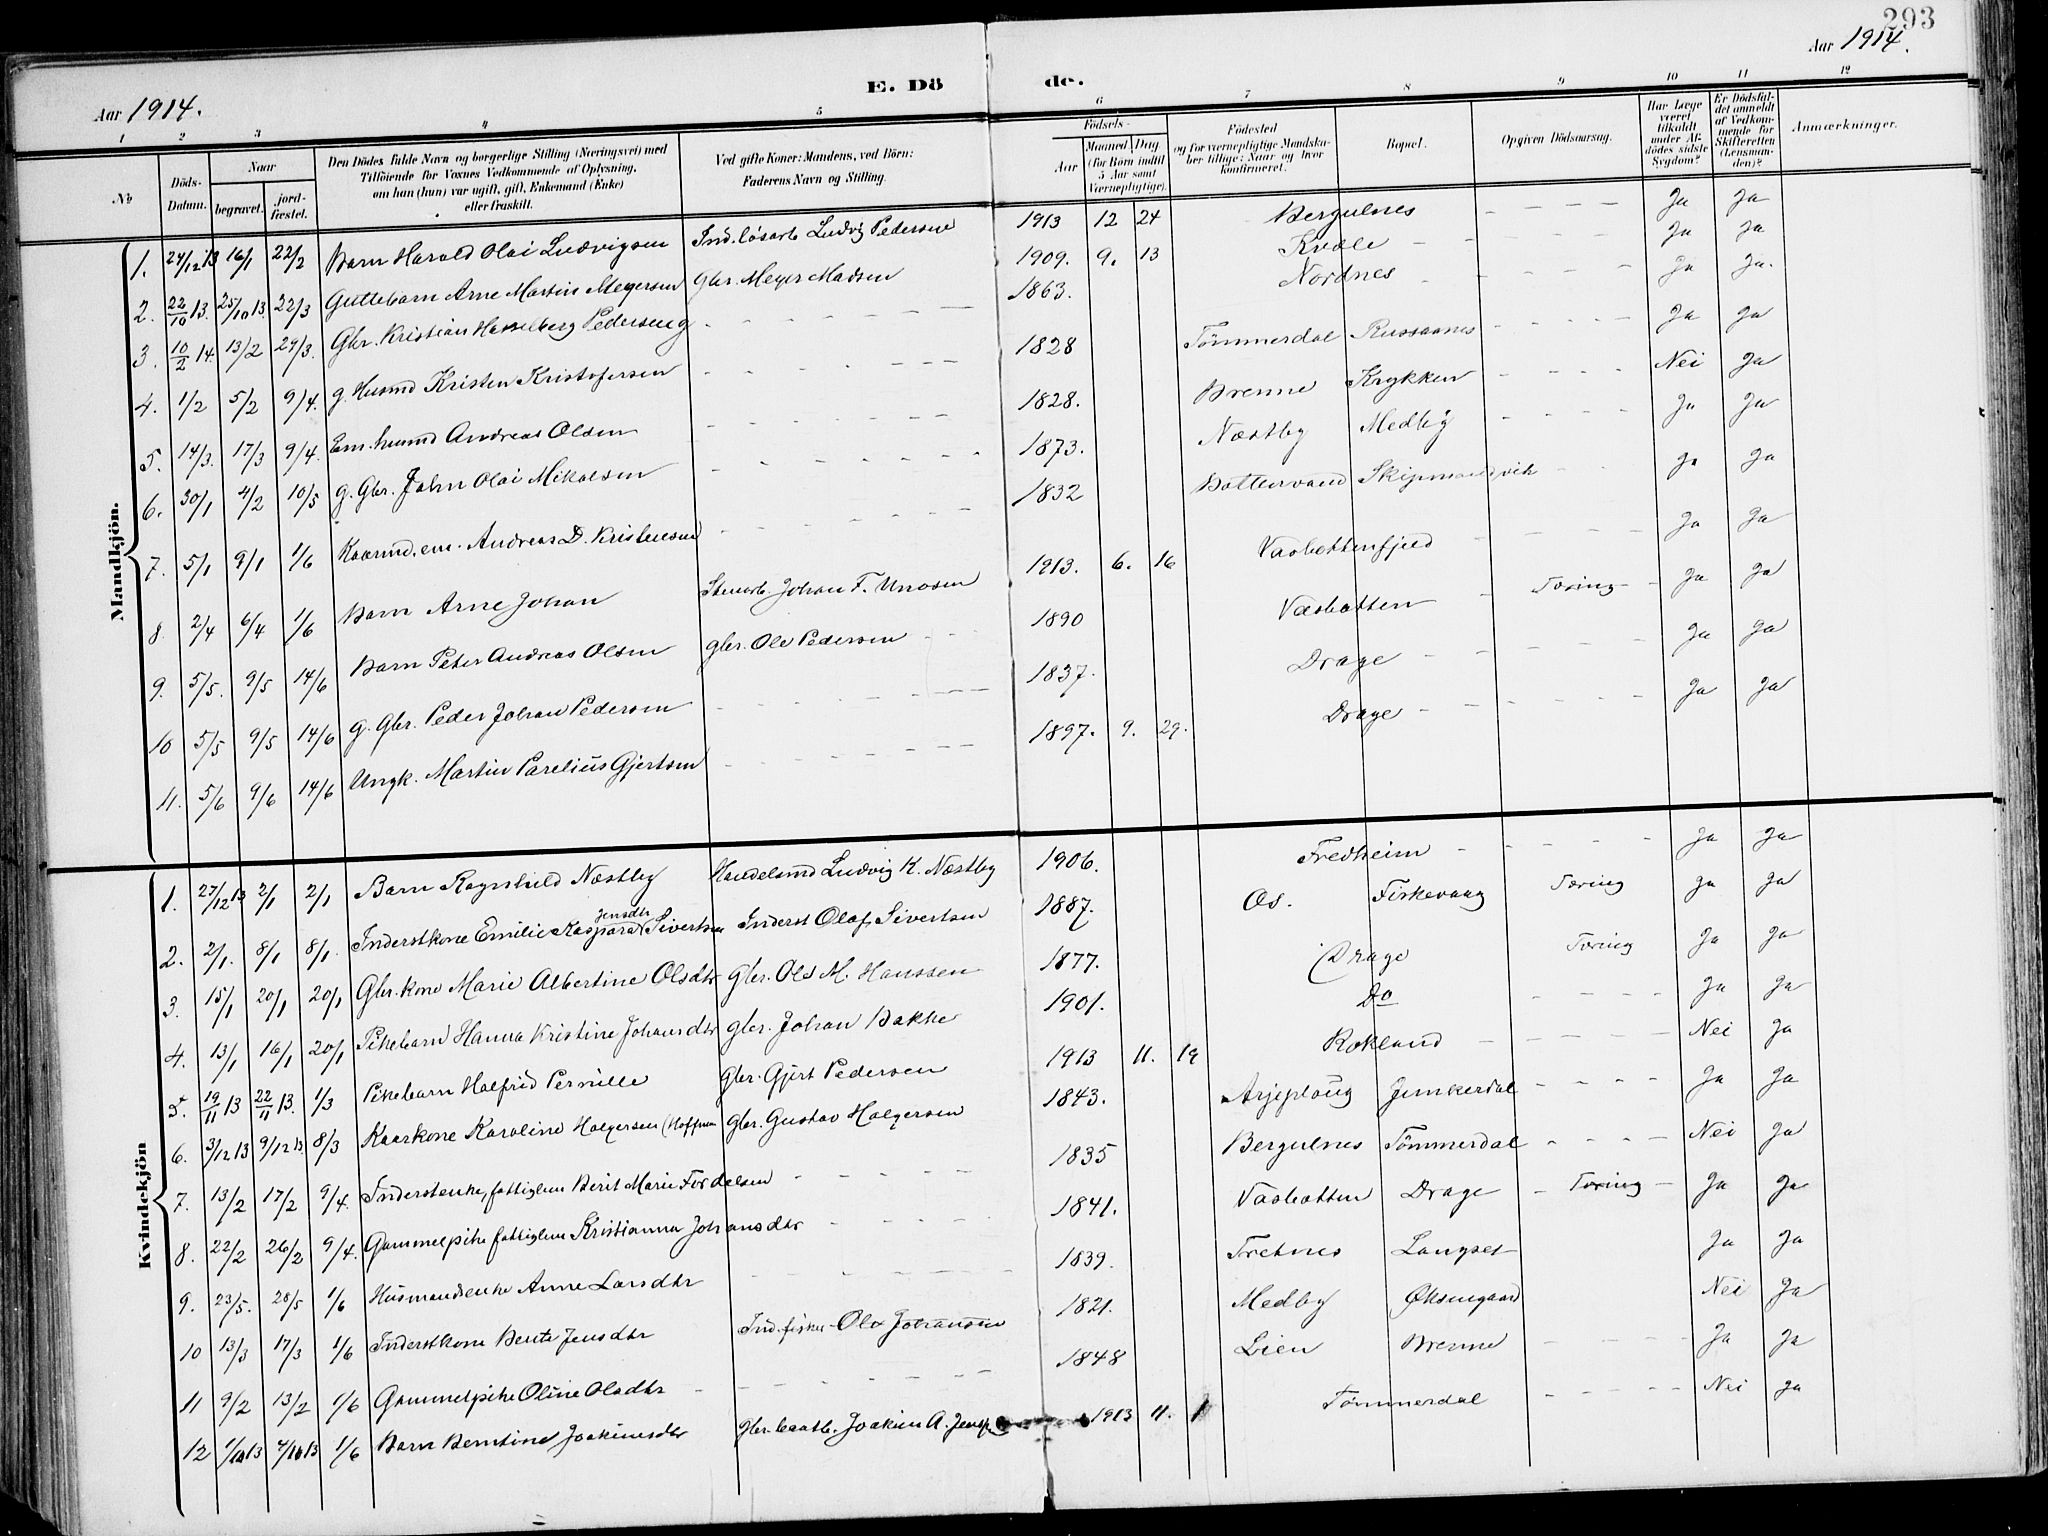 293
Aar 1914.
E. Dö de.
Aar 1914.
1 2 3 4 5 6 7 8 9 10 11 12
No
Döds-Datum.
Naar
begravet. jord-fæstet.
Den Dödes fulde Navn og borgerlige Stilling (Næringsvei) med Tilföiende for Voxnes Vedkommende af Oplysning, om han (hun) var ugift, gift, Enkemand (Enke) eller fraskilt.
Ved gifte Koner: Mandens, ved Börn: Faderens Navn og Stilling.
Födsels-
Aar Maaned Dag
(for Börn indtil 5 Aar samt Værnepligtige).
Födested og for værnepligtige Mandskaber tillige: Naar og hvor konfirmeret.
Bopæl.
Opgiven Dödsaarsag.
Har Læge været tilkaldt under Afdödes sidste Sygdom?
Er Dödsfaldet anmeldt af Vedkommende for Skifteretten (Lensmanden)?
Anmærkninger.
Mandkjön.
1. 24/12 13 16/1 22/2 Barn Harald Olai Ludvigsen Ind. løsarb. Ludvig Pedersen 1913 12 24 Bergulnes - - - - Ja Ja
2. 22/10 13. 25/10 13. 22/3 Guttebarn Arne Martin Meyersen Gbr. Meyer Madsen 1909. 9. 13 Kvæle - - - - Ja Ja
3. 10/2 14. 13/2 29/3. Gbr. Kristian Hasselberg Pedersen g - - - - 1863. Nordnes - - - - Ja Ja.
4. 1/2 5/2 9/4. g. Husmd Kristen Kristofersen - - - - 1828 Tömmerdal Russaanes - - - - Ja Ja
5. 14/3. 17/3 9/4. Em. husmd Andreas Olsen - - - - 1828. Brenne Krykken - - - - Nei Ja
6. 30/1 4/2 10/5 g. Gbr. John Olai Mikalsen - - - - 1873. Næstby Medby - - - - Ja Ja
7. 5/1 9/1 1/6 Kaarmd. em. Andreas D. Kristensen - - - - 1832 Bottenvand Skipmandvik - - Ja Ja
8. 2/4 6/4 1/6 Barn Arne Johan Stenarb. Johan F. Unosen 1913. 6. 16 Vasbottenfjeld - - - - Ja Ja
9. 5/5. 9/5 14/6 Barn Peter Andreas Olsen gbr. Ole Pedersen - - 1890 Vasbotten - Tæring - Ja Ja
10 5/5 9/5 14/6 g. Gbr. Peder Johan Pedersen - - - - 1837. Drage - - - - Ja Ja
11. 5/6 9/6 14/6 Ungk. Martin Parelius Gjertsen - - - - 1897. 9. 29. Drage - - - - Ja Ja
Kvindekjön
1. 27/12 13 2/1 2/1 Barn Ragnhild Næstby Handelsmd Ludvig K. Næstby 1906. Fredheim - - - - Ja Ja
2. 2/1. 8/1 8/1. Inderstkone Emilie Kaspara Jensdtr Sivertsen Inderst Olaf Sivertsen 1887. Os. Fiskevaag Tæring Ja Ja
3. 15/1 20/1 20/1 Gbr. kone Marie Albertine Olsdtr Gbr. Ole M. Hanssen 1877. Drage Tæring Ja Ja
4. 13/1 16/1 20/1 Pikebarn Hanna Kristine Johansdtr gbr. Johan Bakke 1901. Do - - - - Ja Ja
5. 19/11 13 22/11 13. 1/3 Pikebarn Halfrid Pernille Gbr. Gjert Pedersen 1913 11. 19 Rokland - - - - Nei Ja
6. 3/12 13 9/12 13. 8/3 Kaarkone Karoline Holgersen (Hoffman Gbr. Gustav Holgersen 1843. Arjeploug Junkerdal - - - - Ja Ja
7. 13/2 17/2 9/4. Inderstenke, fattiglem Berit Marie Fordelsen - - - - 1835 Bergulnes Tömmerdal - - - - Nei Ja
8. 22/2 26/2 9/4. Gammelpike fattiglem Kristianna Johansdtr - - - - 1841. Vasbotten Drage - Tæring - Ja Ja
9. 23/5. 28/5 1/6 Husmandsenke Anne Larsdtr - - - - 1839. Tretnes Langset Ja Ja
10 13/3 17/3 1/6 Inderstkone Berte Jensdtr Ind. fisker Ole Johansen 1821. Medby Øksengaard Nei Ja
11 9/2 13/2 1/6 Gammelpike Oline Olsdtr - - - - 1848 Lien Brenne Ja Ja
12 13 13 1/6 Barn Berntine Joakimsdtr Joakim A. 1913 11. Tömmerdal - - - - Nei Ja